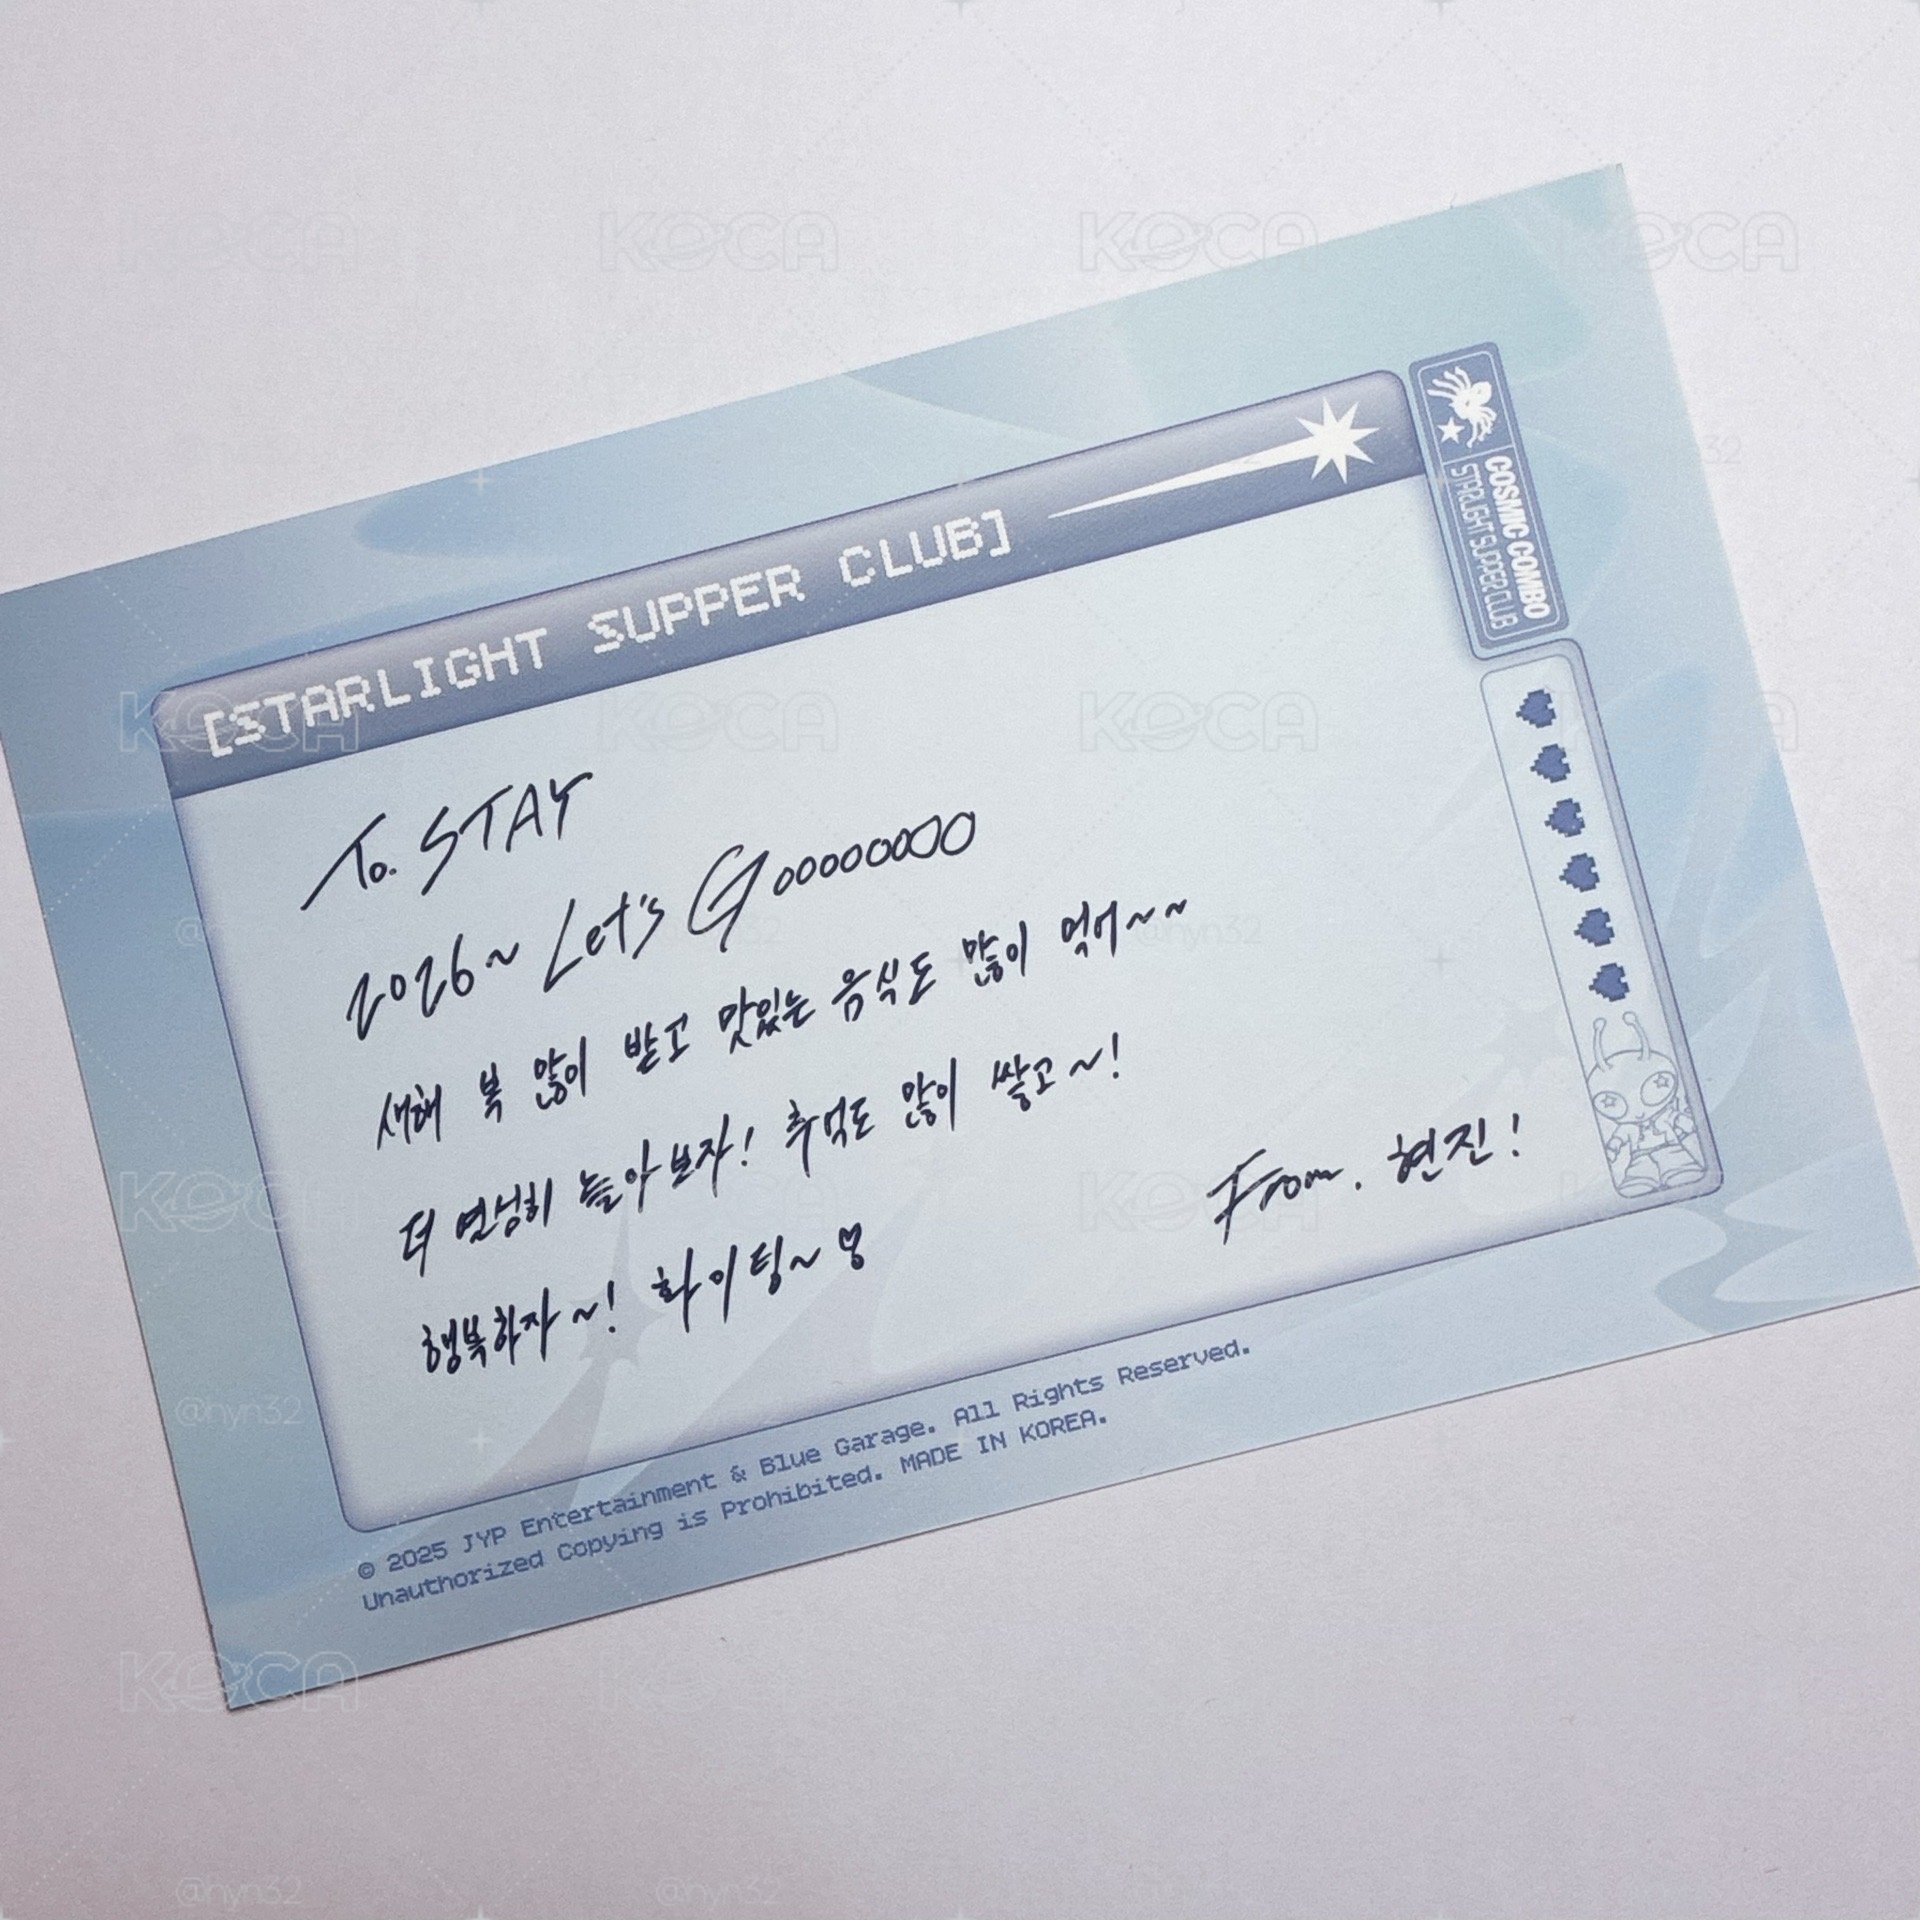 [STARLIGHT SUPPER CLUB]
COSMIC COMBO
STARLIGHT SUPPER CLUB
To. STAY
2026~ Let's Gooooooooo
새해 복 많이 받고 맛있는 음식도 많이 먹어~~
더 열심히 놀아보자! 추억도 많이 쌓고~!
행복하자~! 화이팅~♡
From. 현진!
© 2025 JYP Entertainment & Blue Garage. All Rights Reserved.
Unauthorized Copying is Prohibited. MADE IN KOREA.
KOCA
@nyn32